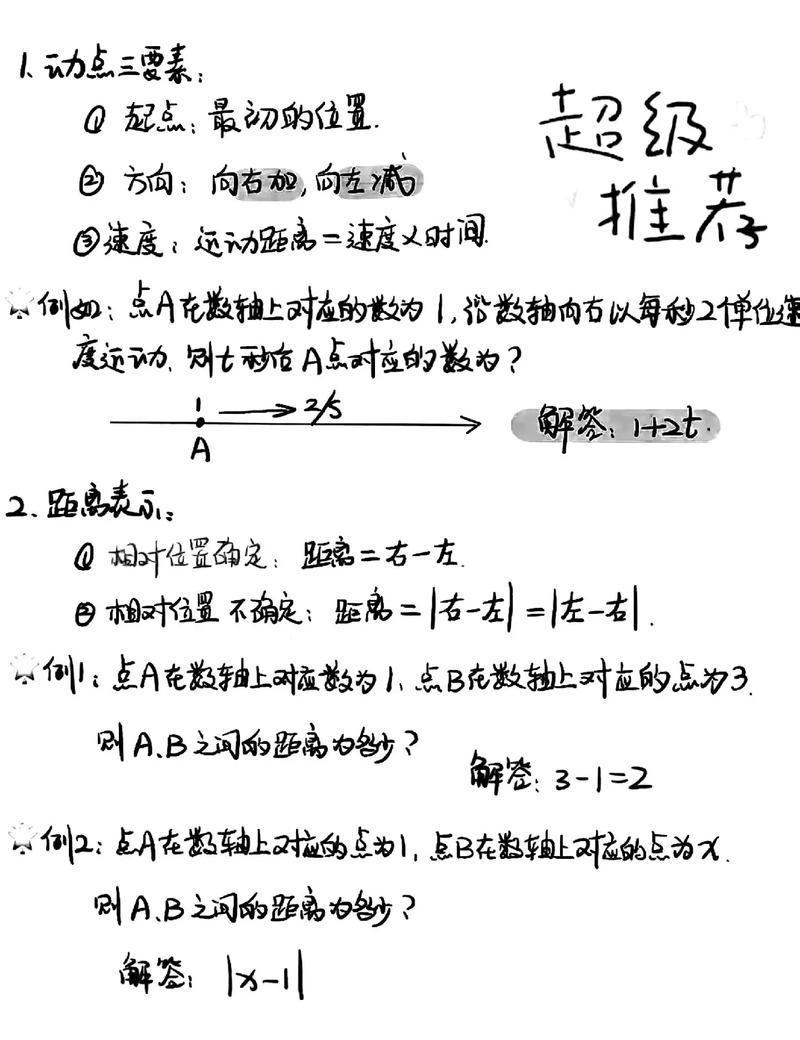 1、动点三要素：
① 起点：最初的位置.
② 方向：向右加，向左减
③ 速度：运动距离＝速度×时间.
超级
推荐
例如：点A在数轴上对应的数为1，沿数轴向右以每秒2个单位速
度运动、则t秒后A点对应的数为？
1 → 2/s
A
解答：1+2t.
2、距离表示：
① 相对位置确定：距离＝右－左.
② 相对位置不确定：距离＝|右－左|＝|左－右|.
例1：点A在数轴上对应数为1、点B在数轴上对应的点为3.
则A、B之间的距离为多少？
解答：3-1=2
例2：点A在数轴上对应的点为1，点B在数轴上对应的点为x.
则A、B之间的距离为多少？
解答：|x-1|